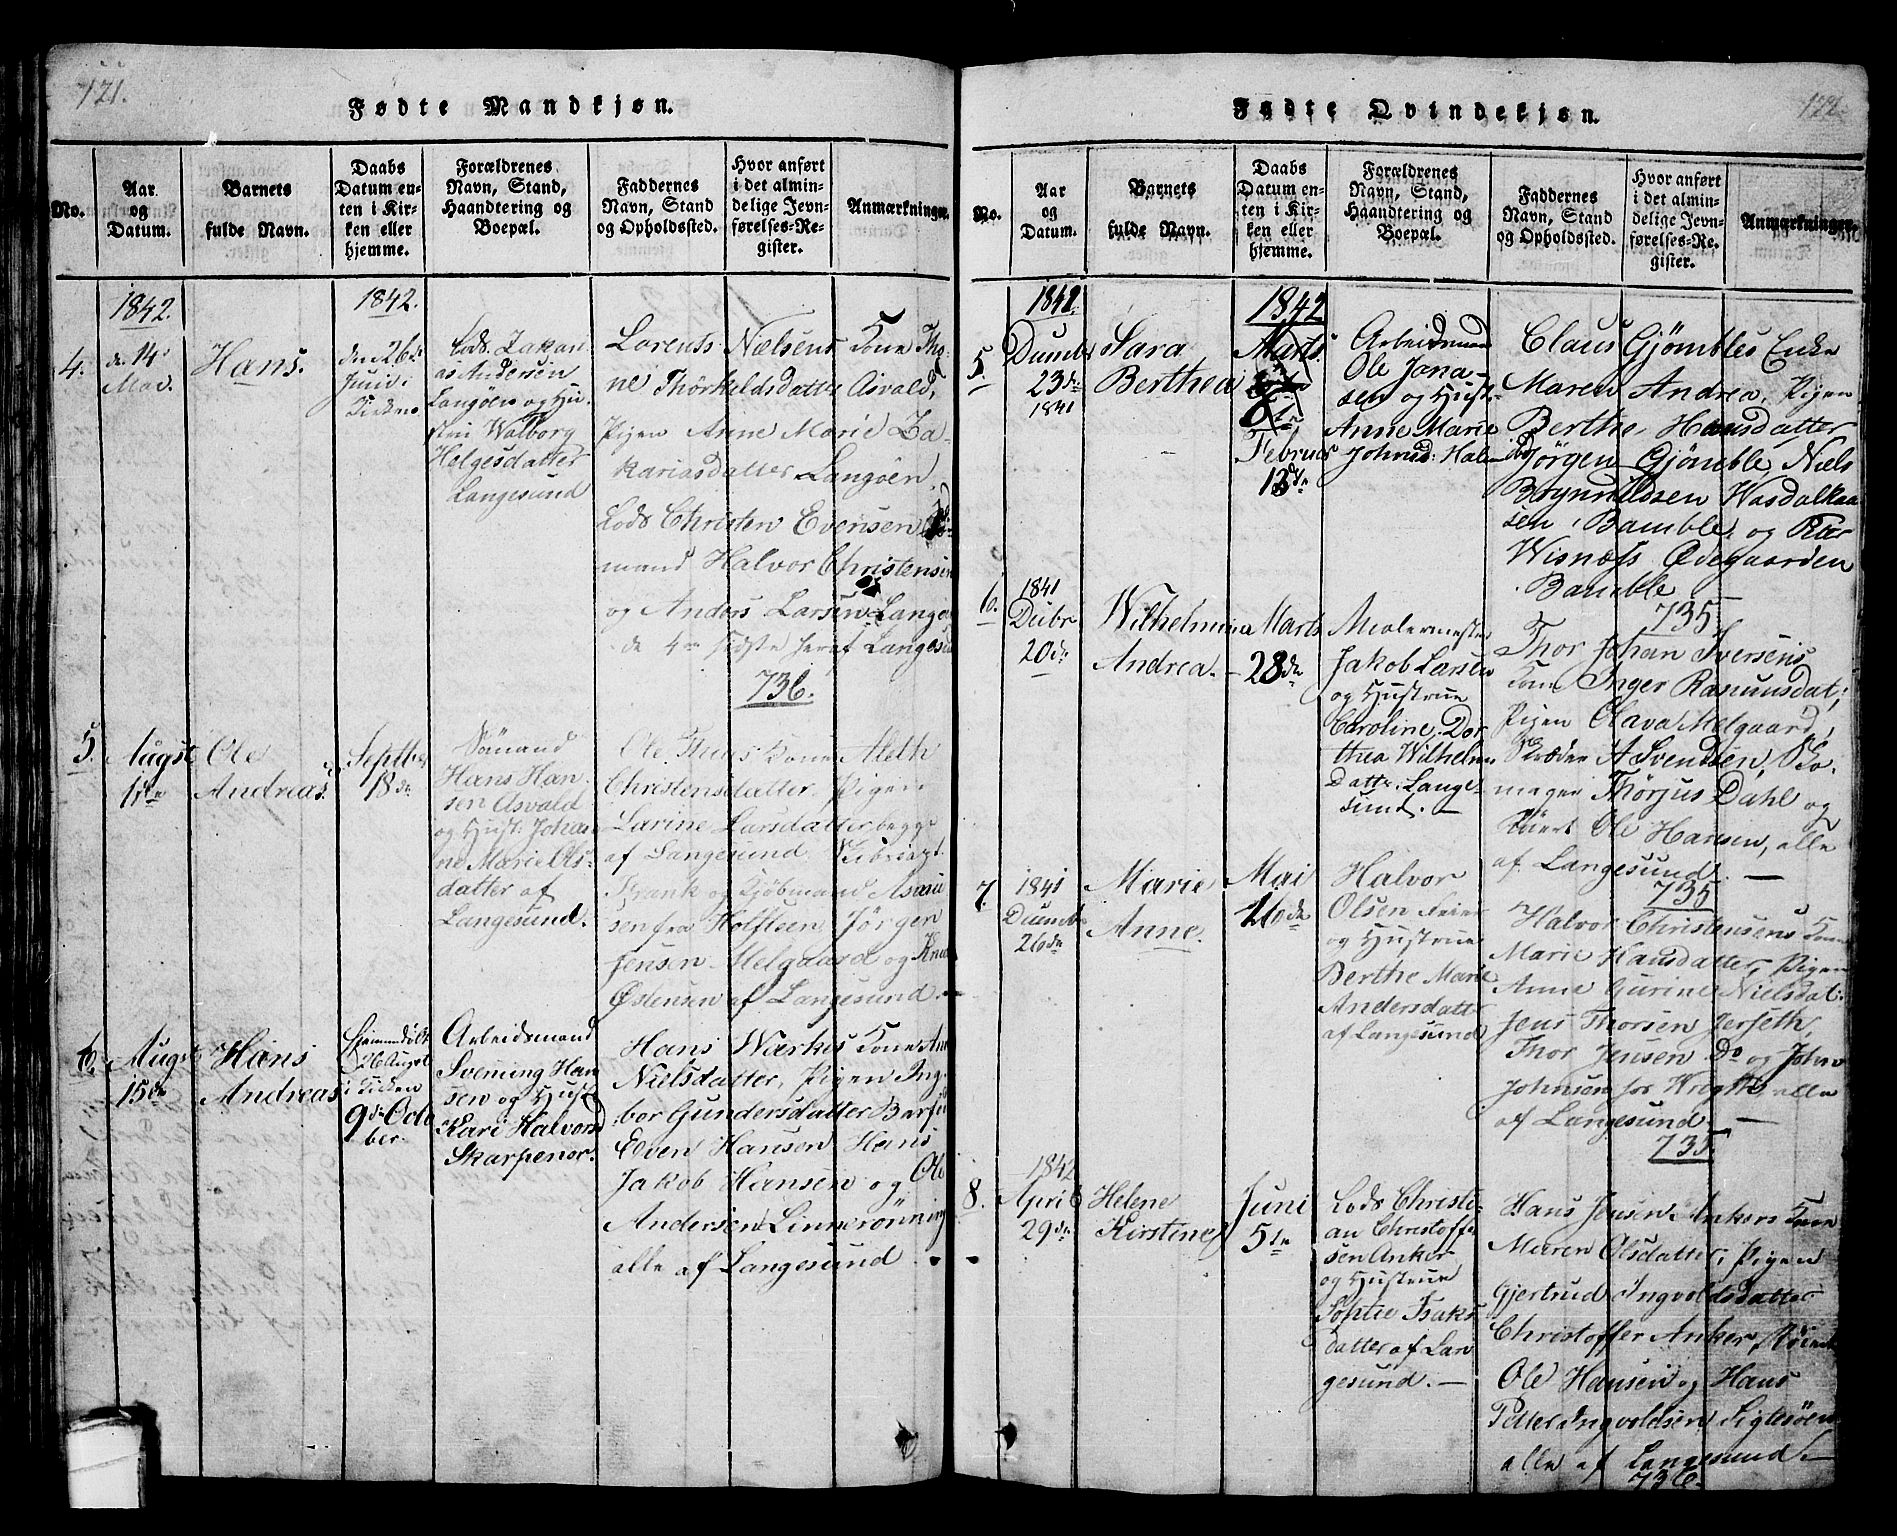 121.
Fødte Mandkjøn.
No.
Aar og Datum.
Barnets fulde Navn.
Daabs Datum enten i Kirken eller hjemme.
Forældrenes Navn, Stand, Haandtering og Boepæl.
Faddernes Navn, Stand og Opholdssted.
Hvor anført i det almindelige Jevnførelses-Register.
Anmærkninger.
1842.
4.
de 14de
Mai.
Hans.
1842.
den 26de
Juni i
Kirken
Lods. Zakari
as Andersen
Langøen og Hu
strue Walborg
Helgesdatter
Langesund
Lorents Nielsens Kone Tho
ne Thorkeldsdatter Asvald,
Pigen Anne Marie Za-
kariasdatter Langøen,
Lods Christen Evensen
mand Halvor Christensen
og Anders Larsen Lange
de 4re sidste heraf Langesu
736.
5.
Augst
1ste
Ole
Andreas.
Septber
18de
Sømand
Hans Han-
sen Asvald
og Hust: Johan
ne Marie Ols-
datter af
Langesund.
Ole Thues Kone Aleth
Christensdatter Pigen
Larine Larsdatter begge
af Langesund
Frank og Kjøbmand
sen fra Jørgen
Jensen Melgaard og Knud
Østensen af Langesund.
6.
Augst
15de
Hans
Andreas
Hjemmedøbt
i Kirken
9de Octo
ber.
Arbeidsmand
Svening Han
sen og Hust
Kari Halvorsd
Skarpenor.
Hans Værkes Kone Ane
Nielsdatter, Pigen Ing-
bor Gundersdatter
Even Hansen Hans
Jakob Hansen og Ole
Andersen Linnerønning
alle af Langesund.
122.
Fødte Qvindekjøn.
No.
Aar og Datum.
Barnets fulde Navn.
Daabs Datum enten i Kirken eller hjemme.
Forældrenes Navn, Stand, Haandtering og Boepæl.
Faddernes Navn, Stand og Opholdssted.
Hvor anført i det almindelige Jevnførelses-Register.
Anmærkninger.
5
23de
1841
Sara
Berthea
1842
Marts
Februar
13de
Arbeidsmand
Ole Jona-
sen og Hust.
Anne Marie
Claus Gjømbles Enke
Maren Andrea, Pigen
Berthe Hansdatter
Jørgen Gjømble, Niels
Brynildsen
sen i Bamble og
Wisnæss Ødegaarden
Bamble
735
6.
1841
Decbr
20de
Wilhelmina
Andrea.
Marts
28de
Malermester
Jakob Larsen
og Hustrue
Caroline Dor
thea Wilhelms
Datter Lange-
sund.
Thor Johan Iversens
Kone Inger Rasmusdat,
Pigen Olava Melgaard,
Skræder A Svendsen
mager Thorjus Dahl og
Ole Hansen, alle
af Langesund.
735
7.
1841
26de
Marie
Anne.
Mai
26de
Halvor
Olsen
og Hustrue
Berthe Marie
Andersdatter
af Langesund
Halvor Christensens Kone
Marie Hansdatter, Pigen
Anne Gurine Nielsdat.
Jens Thorsen
Thor Jensen Do og John
Johnsen for alle
af Langesund.
735
8.
1842
April
29de
Helene
Kirstine
Juni
5te
Lods Christi-
an Christoffer
sen Anker
og Hustrue
Sophie Isaks
datter af Lan
gesund.
Hans Jensen Ankers Kone
Maren Olsdatter, Pigen
Gjertrud Ingvoldsdatter
Christoffer Anker,
Ole Hansen og Hans
Petter Ingvoldsen
alle af Langesund.
736.